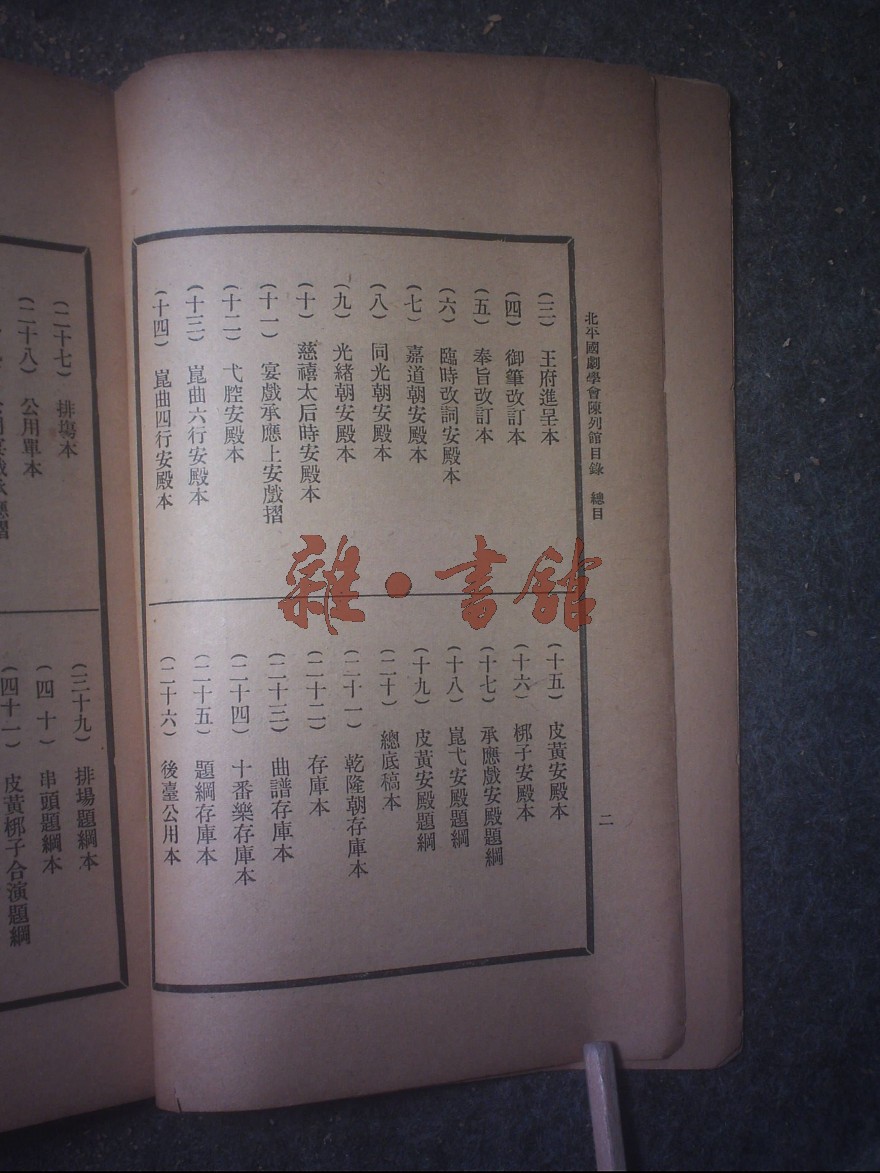 北平國劇學會陳列館目錄 總目
二
(三) 王府進呈本
(四) 御筆改訂本
(五) 奉旨改訂本
(六) 臨時改詞安殿本
(七) 嘉道朝安殿本
(八) 同光朝安殿本
(九) 光緒朝安殿本
(十) 慈禧太后時安殿本
(十一) 宴戲承應上安戲摺
(十二) 弋腔安殿本
(十三) 崑曲六行安殿本
(十四) 崑曲四行安殿本
(十五) 皮黃安殿本
(十六) 梆子安殿本
(十七) 承應戲安殿題綱
(十八) 崑弋安殿題綱
(十九) 皮黃安殿題綱
(二十) 總底稿本
(二十一) 乾隆朝存庫本
(二十二) 存庫本
(二十三) 曲譜存庫本
(二十四) 十番樂存庫本
(二十五) 題綱存庫本
(二十六) 後臺公用本
(二十七) 排場本
(二十八) 公用單本
(三十九) 排場題綱本
(四十) 串頭題綱本
(四十一) 皮黃梆子合演題綱
雜·書館